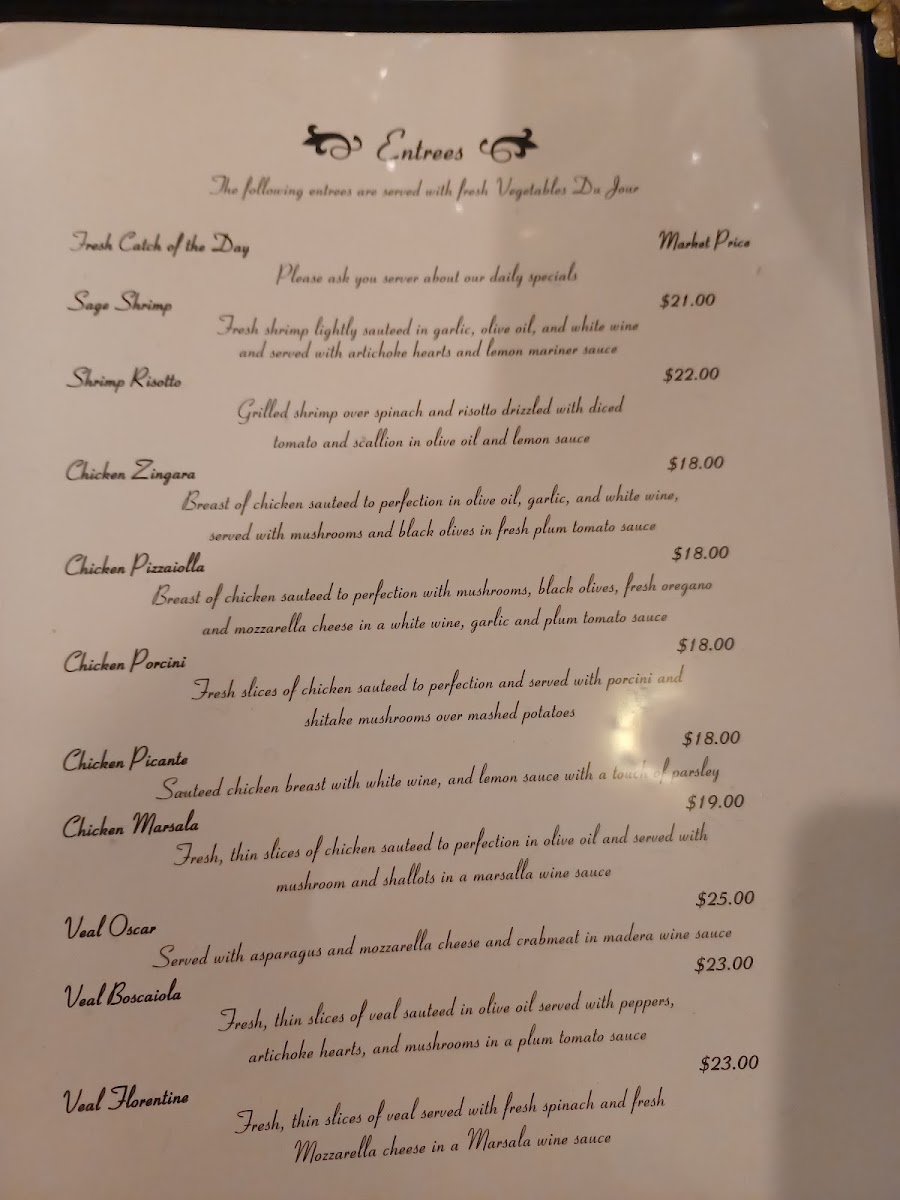 Entrees
The following entrees are served with fresh Vegetables Du Jour
Fresh Catch of the Day Market Price
Please ask you server about our daily specials
Sage Shrimp $21.00
Fresh shrimp lightly sauteed in garlic, olive oil, and white wine
and served with artichoke hearts and lemon mariner sauce
Shrimp Risotto $22.00
Grilled shrimp over spinach and risotto drizzled with diced
tomato and scallion in olive oil and lemon sauce
Chicken Zingara $18.00
Breast of chicken sauteed to perfection in olive oil, garlic, and white wine,
served with mushrooms and black olives in fresh plum tomato sauce
Chicken Pizzaiolla $18.00
Breast of chicken sauteed to perfection with mushrooms, black olives, fresh oregano
and mozzarella cheese in a white wine, garlic and plum tomato sauce
Chicken Porcini $18.00
Fresh slices of chicken sauteed to perfection and served with porcini and
shitake mushrooms over mashed potatoes
Chicken Picante $18.00
Sauteed chicken breast with white wine, and lemon sauce with a touch of parsley
Chicken Marsala $19.00
Fresh, thin slices of chicken sauteed to perfection in olive oil and served with
mushroom and shallots in a marsalla wine sauce
Veal Oscar $25.00
Served with asparagus and mozzarella cheese and crabmeat in madera wine sauce
Veal Boscaiola $23.00
Fresh, thin slices of veal sauteed in olive oil served with peppers,
artichoke hearts, and mushrooms in a plum tomato sauce
Veal Florentine $23.00
Fresh, thin slices of veal served with fresh spinach and fresh
Mozzarella cheese in a Marsala wine sauce